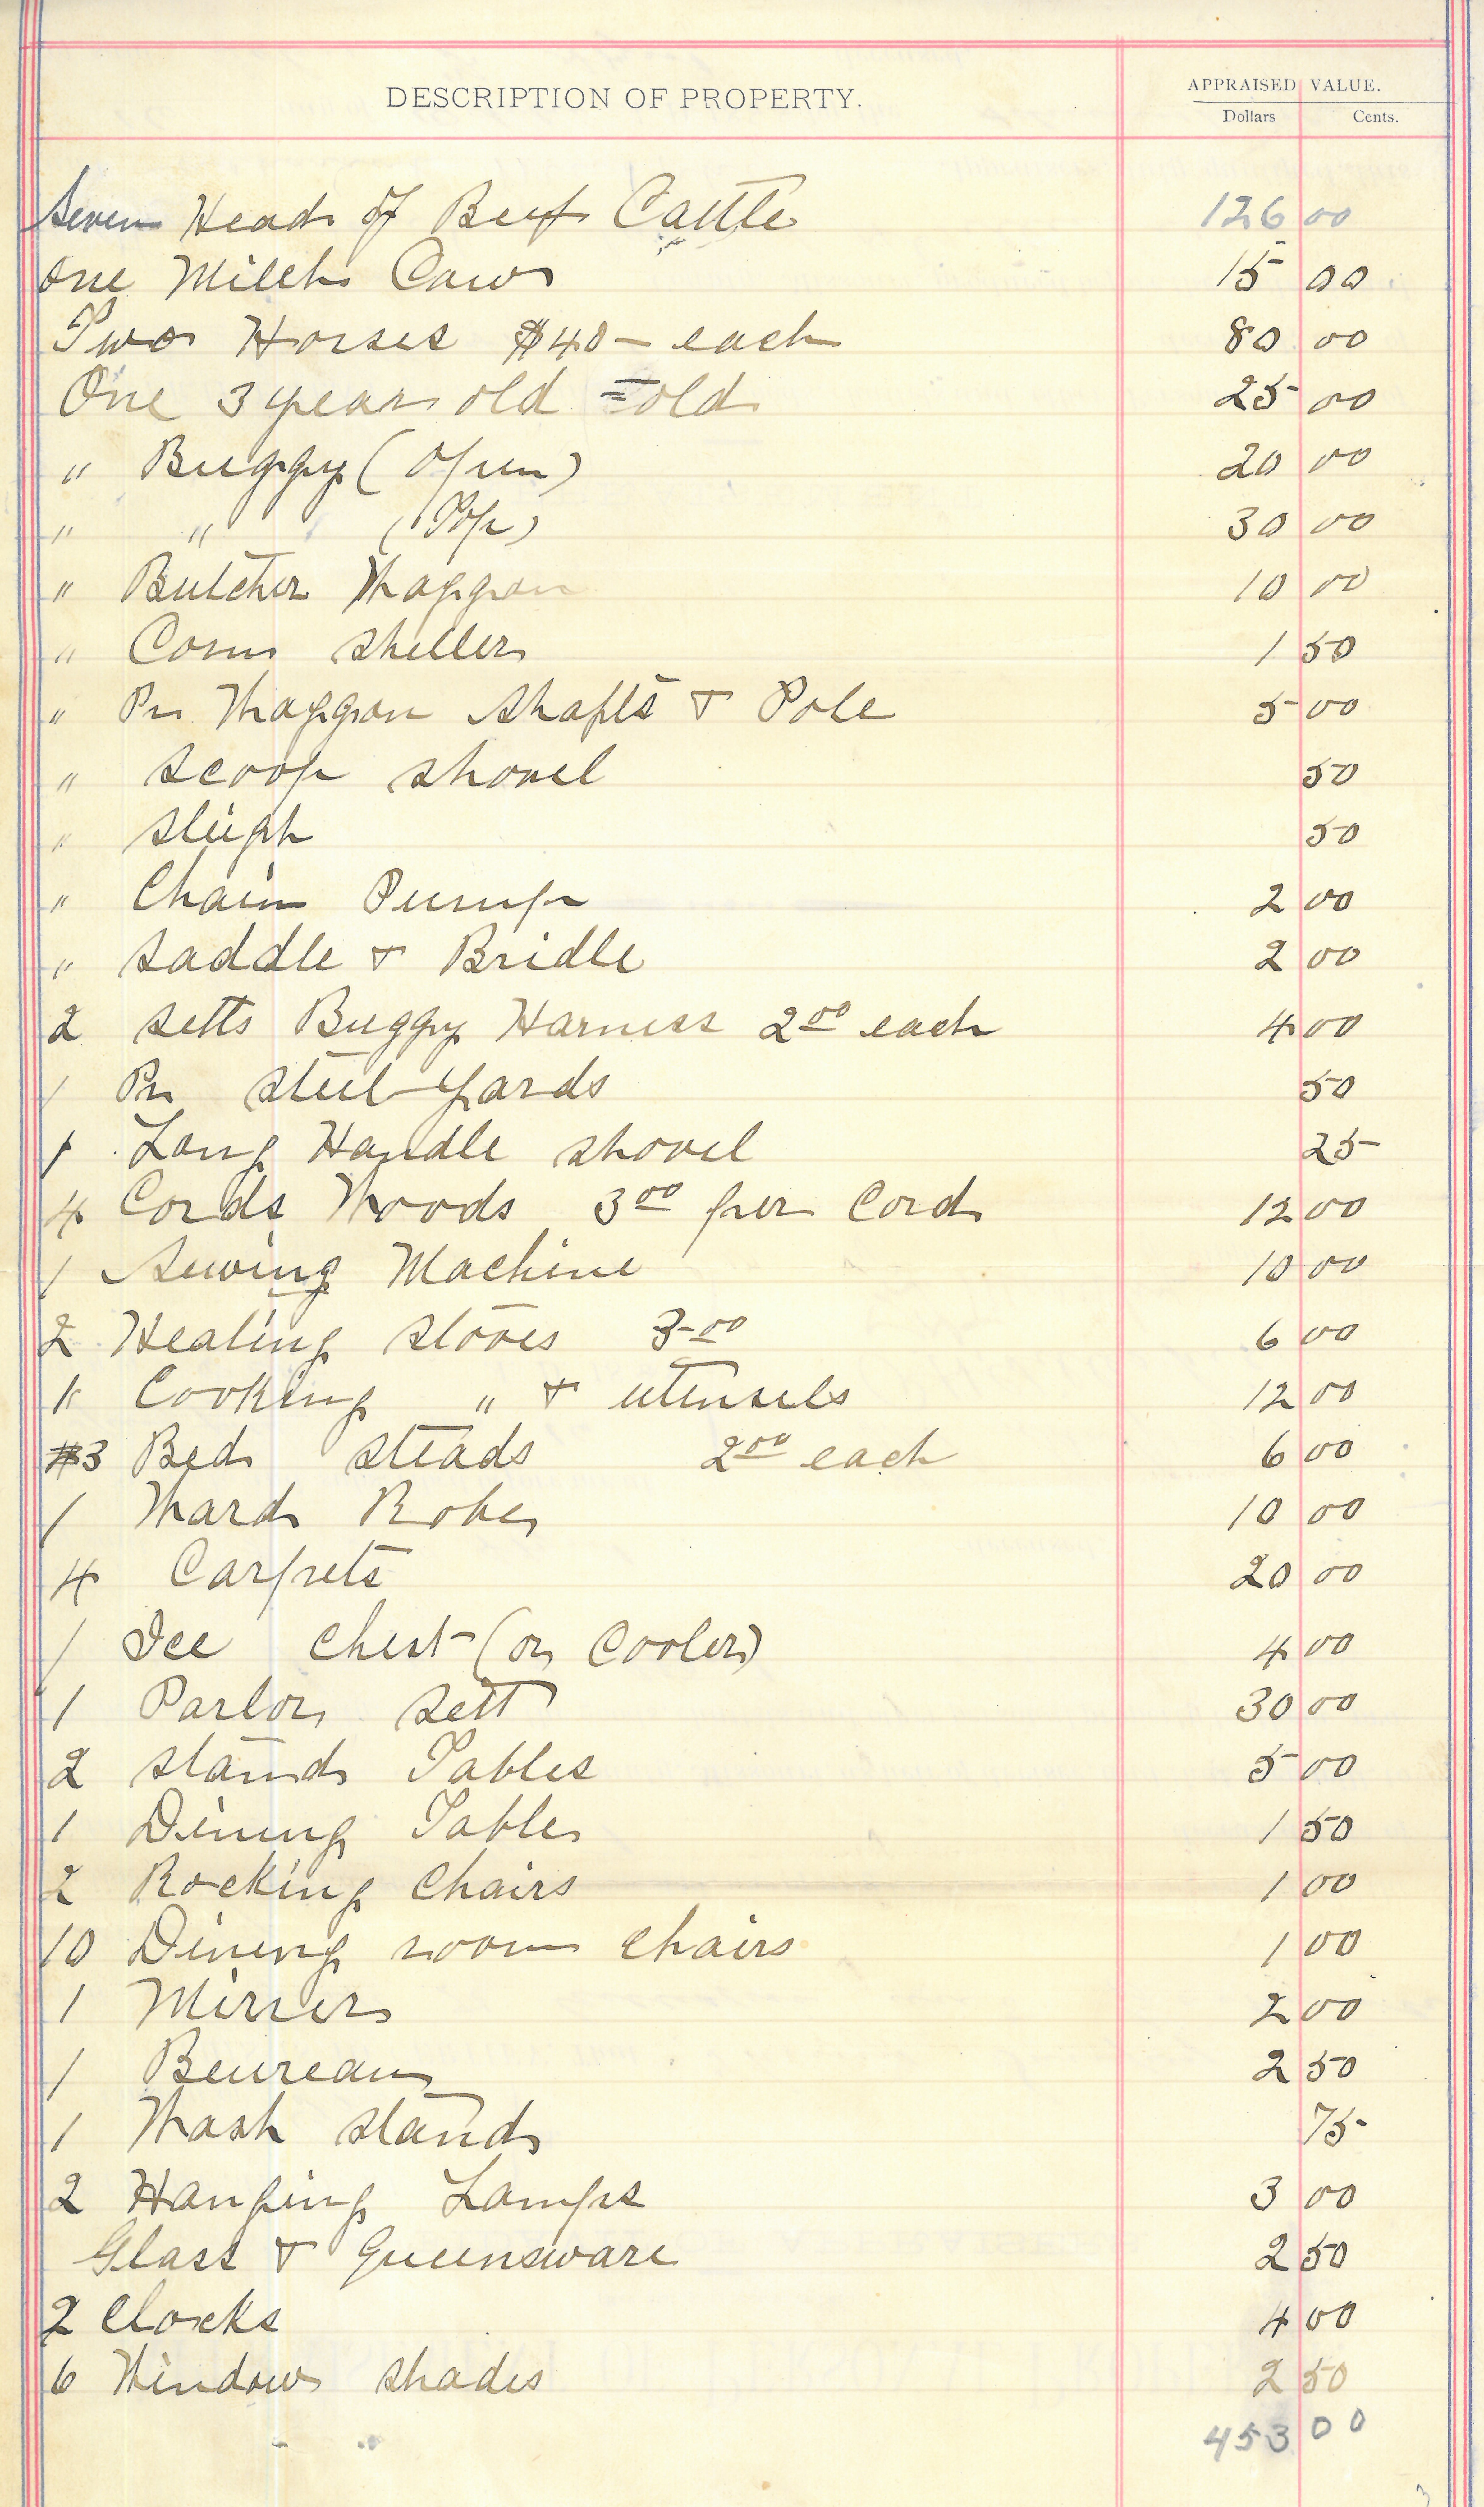 DESCRIPTION OF PROPERTY. APPRAISED VALUE.
Dollars Cents.
Seven Head of Beef Cattle 126 00
One Milch Cow 15 00
Two Horses $40 - each 80 00
One 3 year old = old 25 00
" Buggy (Open) 20 00
" " (Top) 30 00
" Butcher Waggon 10 00
" Corn Sheller 1 50
" Pr Waggon Shafts & Pole 5 00
" Scoop Shovel 50
" Sleigh 50
" Chain Pump 2 00
" Saddle & Bridle 2 00
2 Setts Buggy Harness 2 00 each 4 00
1 Pr Steel-yards 50
1 Long Handle Shovel 25
4 Cords Wood 3 00 per Cord 12 00
1 Sewing Machine 10 00
2 Heating Stoves 3-00 6 00
1 Cooking " & utensels 12 00
3 Bed Steads 2 00 each 6 00
1 Ward Robe 10 00
4 Carpets 20 00
1 Ice Chest (or Cooler) 4 00
1 Parlor Sett 30 00
2 Stand Tables 5 00
1 Dining Table 1 50
2 Rocking Chairs 1 00
10 Dining room Chairs 1 00
1 Mirrer 2 00
1 Beureau 2 50
1 Wash Stand 75
2 Hanging Lamps 3 00
Glass & Queensware 2 50
2 Clocks 4 00
6 Window Shades 2 50
453 00